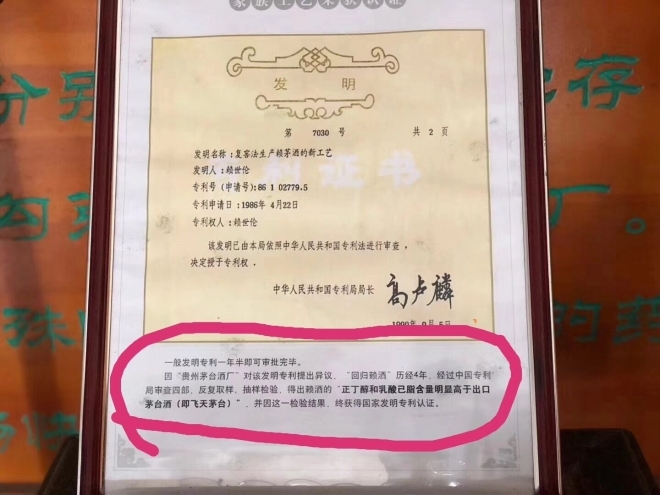 家族工艺荣获认证
发 明
第 7030 号 共 2 页
利证书
发明名称:复窖法生产赖茅酒的新工艺
发明人:赖世伦
专利号(申请号):86 1 02779.5
专利申请日:1986年4月22日
专利权人:赖世伦
该发明已由本局依照中华人民共和国专利法进行审查,
决定授于专利权。
中华人民共和国专利局局长 高卢麟
1990 9 5
一般发明专利一年半即可审批完毕。
因“贵州茅台酒厂”对该发明专利提出异议,“回归赖酒”历经4年,经过中国专利
局审查四部,反复取样、抽样检验,得出赖酒的“正丁醇和乳酸已脂含量明显高于出口
茅台酒(即飞天茅台)”,并因这一检验结果,终获得国家发明专利认证。
分另
存
勾
厂。
殊
的药